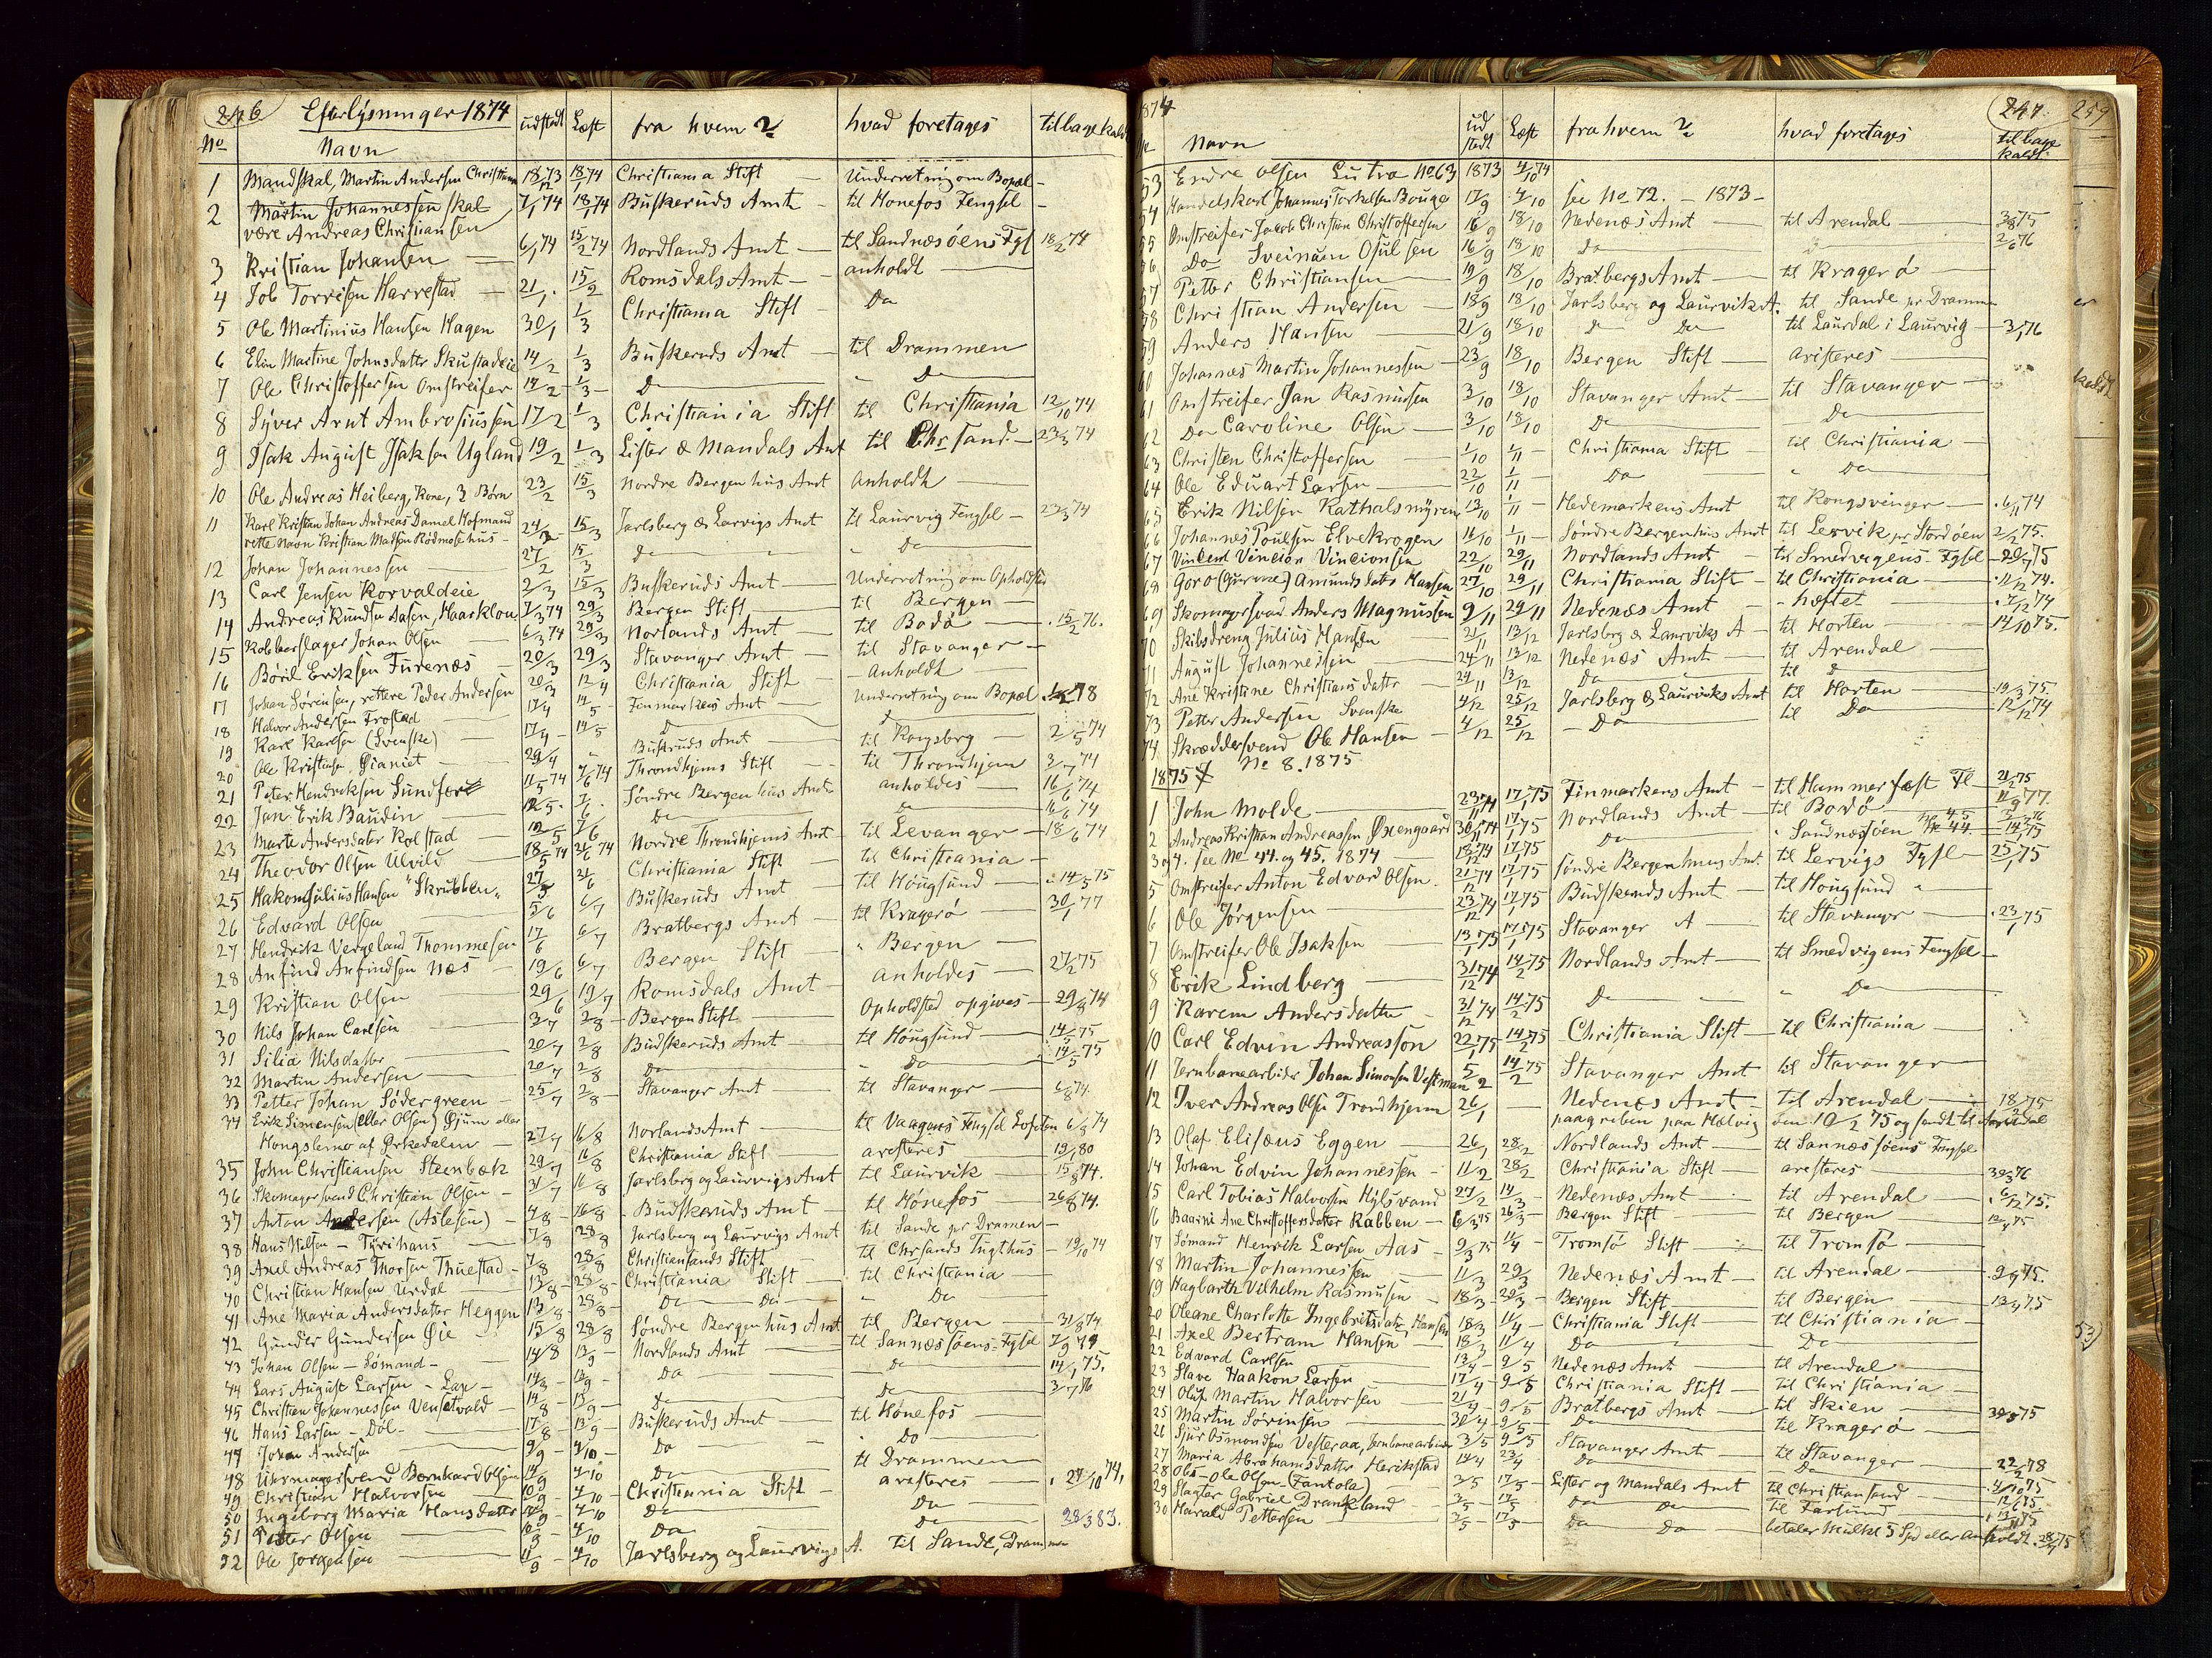 246 Efterlysninger 1874 udstedt Læst fra hvem? hvad foretages tilbagekaldt
No Navn
1 Mandskal, Martin Andersen Christian 18/12 73 18/1 74 Christiania Stift — Underretning om Bopæl —
2 Martin Johannessen skal 7/1 74 18/1 74 Buskeruds Amt — til Hønefos Fengsel —
være Andreas Christiansen
3 Kristian Johansen 6/1 74 15/2 74 Nordlands Amt — til Sandnæsøens Fgsl 18/2 74
4 Job Torrisen Harrestad — 21/1 15/2 Romsdals Amt — anholdt —
5 Ole Martinius Hansen Hagen 30/1 1/3 Christiania Stift — Do
6 Elin Martine Johnsdatter Skustadeie 14/2 1/3 Buskeruds Amt — til Drammen
7 Ole Christoffersen Omstreifer 14/2 1/3 Do — Do
8 Syver Arnt Ambrosiussen 17/2 1/3 Christiania Stift til Christiania 12/10 74
9 Isak August Isaksen Ugland 19/2 1/3 Lister & Mandals Amt til Chrsand — 23/3 74
10 Ole Andreas Heiberg, Kone, 3 Børn 23/2 15/3 Nordre Bergenhus Amt anholdt —
11 Karl Kristian Johan Andreas Daniel Hofmand 24/2 15/3 Jarlsberg & Larvigs Amt til Laurvig Fengsel — 23/3 74
rette Navn Kristian Madsen Rødmosehus —
12 Johan Johannessen — 27/2 15/3 Do — Do —
13 Carl Jensen Korvaldeie 2/3 15/3 Buskeruds Amt — Underretning om Opholdsted
14 Andreas Knudsen Aasen, Haarklou 7/3 74 29/3 Bergen Stift — til Bergen —
15 Kobberslager Johan Olsen 6/3 74 29/3 Norlands Amt — til Bodø — 15/2 76.
16 Børil Eriksen Furenæs — 20/3 29/3 Stavanger Amt — til Stavanger —
17 Johan Sørensen, rettere Peder Andersen 20/3 12/4 Christiania Stift — Anholdt —
18 Halvor Andersen Frostad 17/4 14/5 Finmarkens Amt — Underretning om Bopæl 78
19 Karl Karlsen (Svenske) — 17/4 14/5 Do
20 Ole Kristiansen Gianiet — 29/4 Buskruds Amt — til Kongsberg — 2/5 74
21 Peter Hendriksen Sundfør 11/5 74 7/6 74 Throndhjems Stift — til Throndhjem 3/7 74
22 Jan Erik Baudin — 12/5 7/6 Søndre Bergenhus Amt anholdes 16/6 74
23 Marte Andersdater Kolstad — 12/5 7/6 Do — Do — 16/6 74
24 Theodor Olsen Ulvild — 18/5 74 21/6 74 Nordre Throndhjems Amt — til Levanger — 18/6 74
25 Hakon Julius Hansen "Skrubben" 27/5 21/6 Christiania Stift — til Christiania —
26 Edvard Olsen — 5/6 6/7 Buskeruds Amt — til Hougsund — 14/5 75
27 Hendrik Vergeland Thommesen 17/6 6/7 Bratbergs Amt — til Kragerø — 30/1 77
28 Anfind Anfindsen Næs — 19/6 6/7 Bergen Stift — " Bergen —
29 Kristian Olsen — 29/6 19/7 Romsdals Amt — anholdes — 27/2 75
30 Nils Johan Carlsen 3/7 2/8 Bergen Stift — Opholdsted opgives — 29/8 74
31 Silia Nilsdatter — 20/7 2/8 Budskeruds Amt — til Hougsund — 14/5 75
32 Martin Andersen — 20/7 2/8 Do — Do 14/5 75
33 Petter Johan Södergreen — 25/7 2/8 Stavanger Amt — til Stavanger — 6/8 74.
34 Erik Simensen (eller Olsen) Gjum eller 27/7 16/8 Norlands Amt — til Vaagens Fengsel Lofoten 6/8 74
Hongslemo af Ørkedalen —
35 John Christiansen Steenbæk 29/7 16/8 Christiania Stift — aresteres — 19/1 80
36 Skomagersvend Christian Olsen — 31/7 16/8 Jarlsberg og Laurvigs Amt til Laurvik — 15/8 74.
37 Anton Andersen (Aslesen) — 4/8 16/8 Budskeruds Amt — til Hønefos — 26/8 74.
38 Hans Nilsen — Tyrihans 7/8 28/8 Jarlsberg og Laurvigs Amt til Sande pr Dramen —
39 Axel Andreas Thorsen Thuestad — 7/8 28/8 Christiansands Stift til Chrsands Tugthus — 19/10 74
40 Christian Hansen Urdal 13/8 28/8 Christiania Stift — til Christiania —
41 Ane Maria Andersdatter Heggen 13/8 28/8 Do — Do — Do —
42 Gunder Gundersen Øie — 15/8 28/8 Søndre Bergenhus Amt til Bergen — 31/8 74.
43 Johan Olsen — Sømand — 14/8 13/9 Nordlands Amt — til Sannæssøens Fgsl 7/9 74
44 Lars August Larsen — Lap — 14/8 13/9 Do — Do 14/1 75.
45 Christian Johannessen Vensetvald — 14/8 13/9 Do — Do — 3/7 76
46 Hans Larsen — Döl — 17/8 13/9 Buskeruds Amt — til Hønefos —
47 Johan Andersen 9/9 4/10 Do — Do —
48 Uhrmagersvend Bernhard Olsen 14/9 4/10 Do til Drammen —
49 Christian Halvorsen 10/9 4/10 Christiania Stift — aresteres — 27/10 74,
50 Ingeborg Maria Hansdatter 10/9 4/10 Do — Do —
51 Peter Olsen 10/9 4/10 Do — Do — 28 3 83.
52 Ole Jørgensen — 11/9 4/10 Jarlsberg og Laurvigs A. til Sande, Drammen
1874 247. 259
No Navn udstedt Læst fra hvem? hvad foretages tilbage kaldt.
53 Endre Olsen Lutro No 63 1873 4/10 74
54 Handelskarl Johannes Torkelsen Bouge 17/9 4/10 see No 72. — 1873 —
55 Omstreifer Jacob Christian Christoffersen 16/9 18/10 Nedenæs Amt — til Arendal — 3/8 75
56 Do Sveinum Osulsen 16/9 18/10 Do — 2/6 76
57 Petter Christiansen — 19/9 18/10 Bratbergs Amt — til Kragerø —
58 Christian Andersen — 18/9 18/10 Jarlsberg og Laurvik A. til Sande pr Drammen
59 Anders Hansen — 21/9 18/10 Do Do til Laurdal i Laurvig — 3/1 76
60 Johannes Martin Johannessen — 23/9 18/10 Bergen Stift — aristeres —
61 Omstreifer Jan Rasmussen 3/10 18/10 Stavanger Amt — til Stavanger —
62 Do Caroline Olsen — 3/10 18/10 Do — Do —
63 Christen Christoffersen — 1/10 1/11 Christiania Stift — til Christiania —
64 Ole Edvart Larsen — 22/10 1/11 Do — " Do —
65 Erik Nilsen Kathalsmyren 13/10 1/11 Hedemarkens Amt til Kongsvinger — 6/11 74
66 Johannes Poulsen Elvekrogen 14/10 1/11 Søndre Bergenhus Amt til Lervik pr Stordøen 2/2 75.
67 Vincent Vincion Vincionsen 22/10 29/11 Nordlands Amt — til Smedvigens Fgsl — 29/7 75
68 Goro (Gurine) Amundsdatter Hansen 27/10 29/11 Christiania Stift — til Christiania — 11/12 74.
69 Skomagersvend Anders Magnussen 9/11 29/11 Nedenæs Amt — heftet — 7/12 74
70 Skibsdreng Julius Hansen 21/11 13/12 Jarlsberg & Laurviks A — til Horten — 14/10 75.
71 August Johannessen 24/11 13/12 Nedenæs Amt — til Arendal —
72 Ane Kristine Christiansdatter 24/11 13/12 Do — til Do —
73 Petter Andersen Svenske 4/12 25/12 Jarlsberg & Laurviks Amt til Horten — 19/3 75.
74 Skræddersvend Ole Hansen — 4/12 25/12 Do — til Do — 12/12 74
No 8. 1875
1875
1 John Molde — 23/11 74 17/1 75 Finmarkens Amt — til Hammerfest Fl 21/2 75
2 Andreas Kristian Andreassen Øxengaard 30/11 74 17/1 75 Nordlands Amt — til Bodø 11/9 77.
3 og 4. see No 44. og 45. 1874 — 18/12 74 17/1 75 Do — " Sandnæssøen No 44 — 14/1 75
5 Omstreifer Anton Edvard Olsen. 21/12 74 17/1 75 Søndre Bergenhus Amt. til Lervigs Fgsl — 25/1 75
6 Ole Jørgensen 23/12 74 17/1 75 Budskeruds Amt — til Hougsund "
7 Omstreifer Ole Isaksen 13/1 75 17/1 75 Stavanger A — til Stavanger — 23/1 75
8 Erik Lindberg — 31/12 74 14/2 75 Nordlands Amt — til Smedvigens Fengsel —
9 Karen Andersdatter — 31/12 74 14/2 75 Do — " Do —
10 Carl Edvin Andreasson 22/1 75 14/2 75 Christiania Stift — til Christiania —
11 Jernbanearbider Johan Simonsen Vestman 5/2 14/2 75 Stavanger Amt til Stavanger —
12 Iver Andreas Olsen Trondhjem 26/1 — Nedenes Amt — til Arendal — 18/2 75
paagreben paa Helvig den 10/2 75 og sendt til Arendal
13 Olaf Elisæus Eggen — 26/1 28/2 Nordlands Amt — til Sannæssøens Fengsel
14 Johan Edvin Johannessen — 11/2 28/2 Christiania Stift — aresteres — 76
15 Carl Tobias Halvorsen Hylsvand 27/2 14/3 Nedenæs Amt — til Arendal — 6/12 75.
16 Baarni Ane Christoffersdatter Rabben — 6/3 75 26/3 Bergen Stift — til Bergen — 75
17 Sømand Henrik Larsen Aas — 9/3 75 11/4 Tromsø Stift — til Tromsø —
18 Martin Johannessen — 11/3 29/3 Nedenæs Amt — til Arendal — 9/9 75.
19 Hagbarth Vilhelm Rasmussen — 18/3 29/3 Bergen Stift — til Bergen — 13/4 75
20 Oleane Charlotte Ingebritsdatter, Hansen 18/3 11/4 Christiania Stift — til Christiania —
21 Axel Bertram Hansen — 18/3 11/4 Do — Do —
22 Edvard Carlsen 13/4 9/5 Nedenæs Amt til Arendal —
23 Slave Haakon Larsen — 17/4 9/5 Christiania Stift — til Christiania —
24 Oluf Martin Halvorsen 21/4 9/5 Bratbergs Amt — til Skien —
25 Martin Sørinsen — 30/4 9/5 Do — til Kragerø — 75
26 Sjur Osmondsen Vesteraa, Jernbanearbeider 3/5 9/5 Stavanger Amt — til Stavanger —
27 Maria Abrahamsdatter Herikstad 14/4 23/4 Do — Do — 22/2 78
28 Ole Olsen (Fantola) — 3/5 17/5 Lister og Mandals Amt til Christiansand — 75
29 Slagter Gabriel Drankland 3/5 17/5 Do Do til Farsund — 12/6 75.
30 Harald Pettersen — 3/5 17/5 Do — Do betaler Mulkt 5 Spd eller anholdt. 75